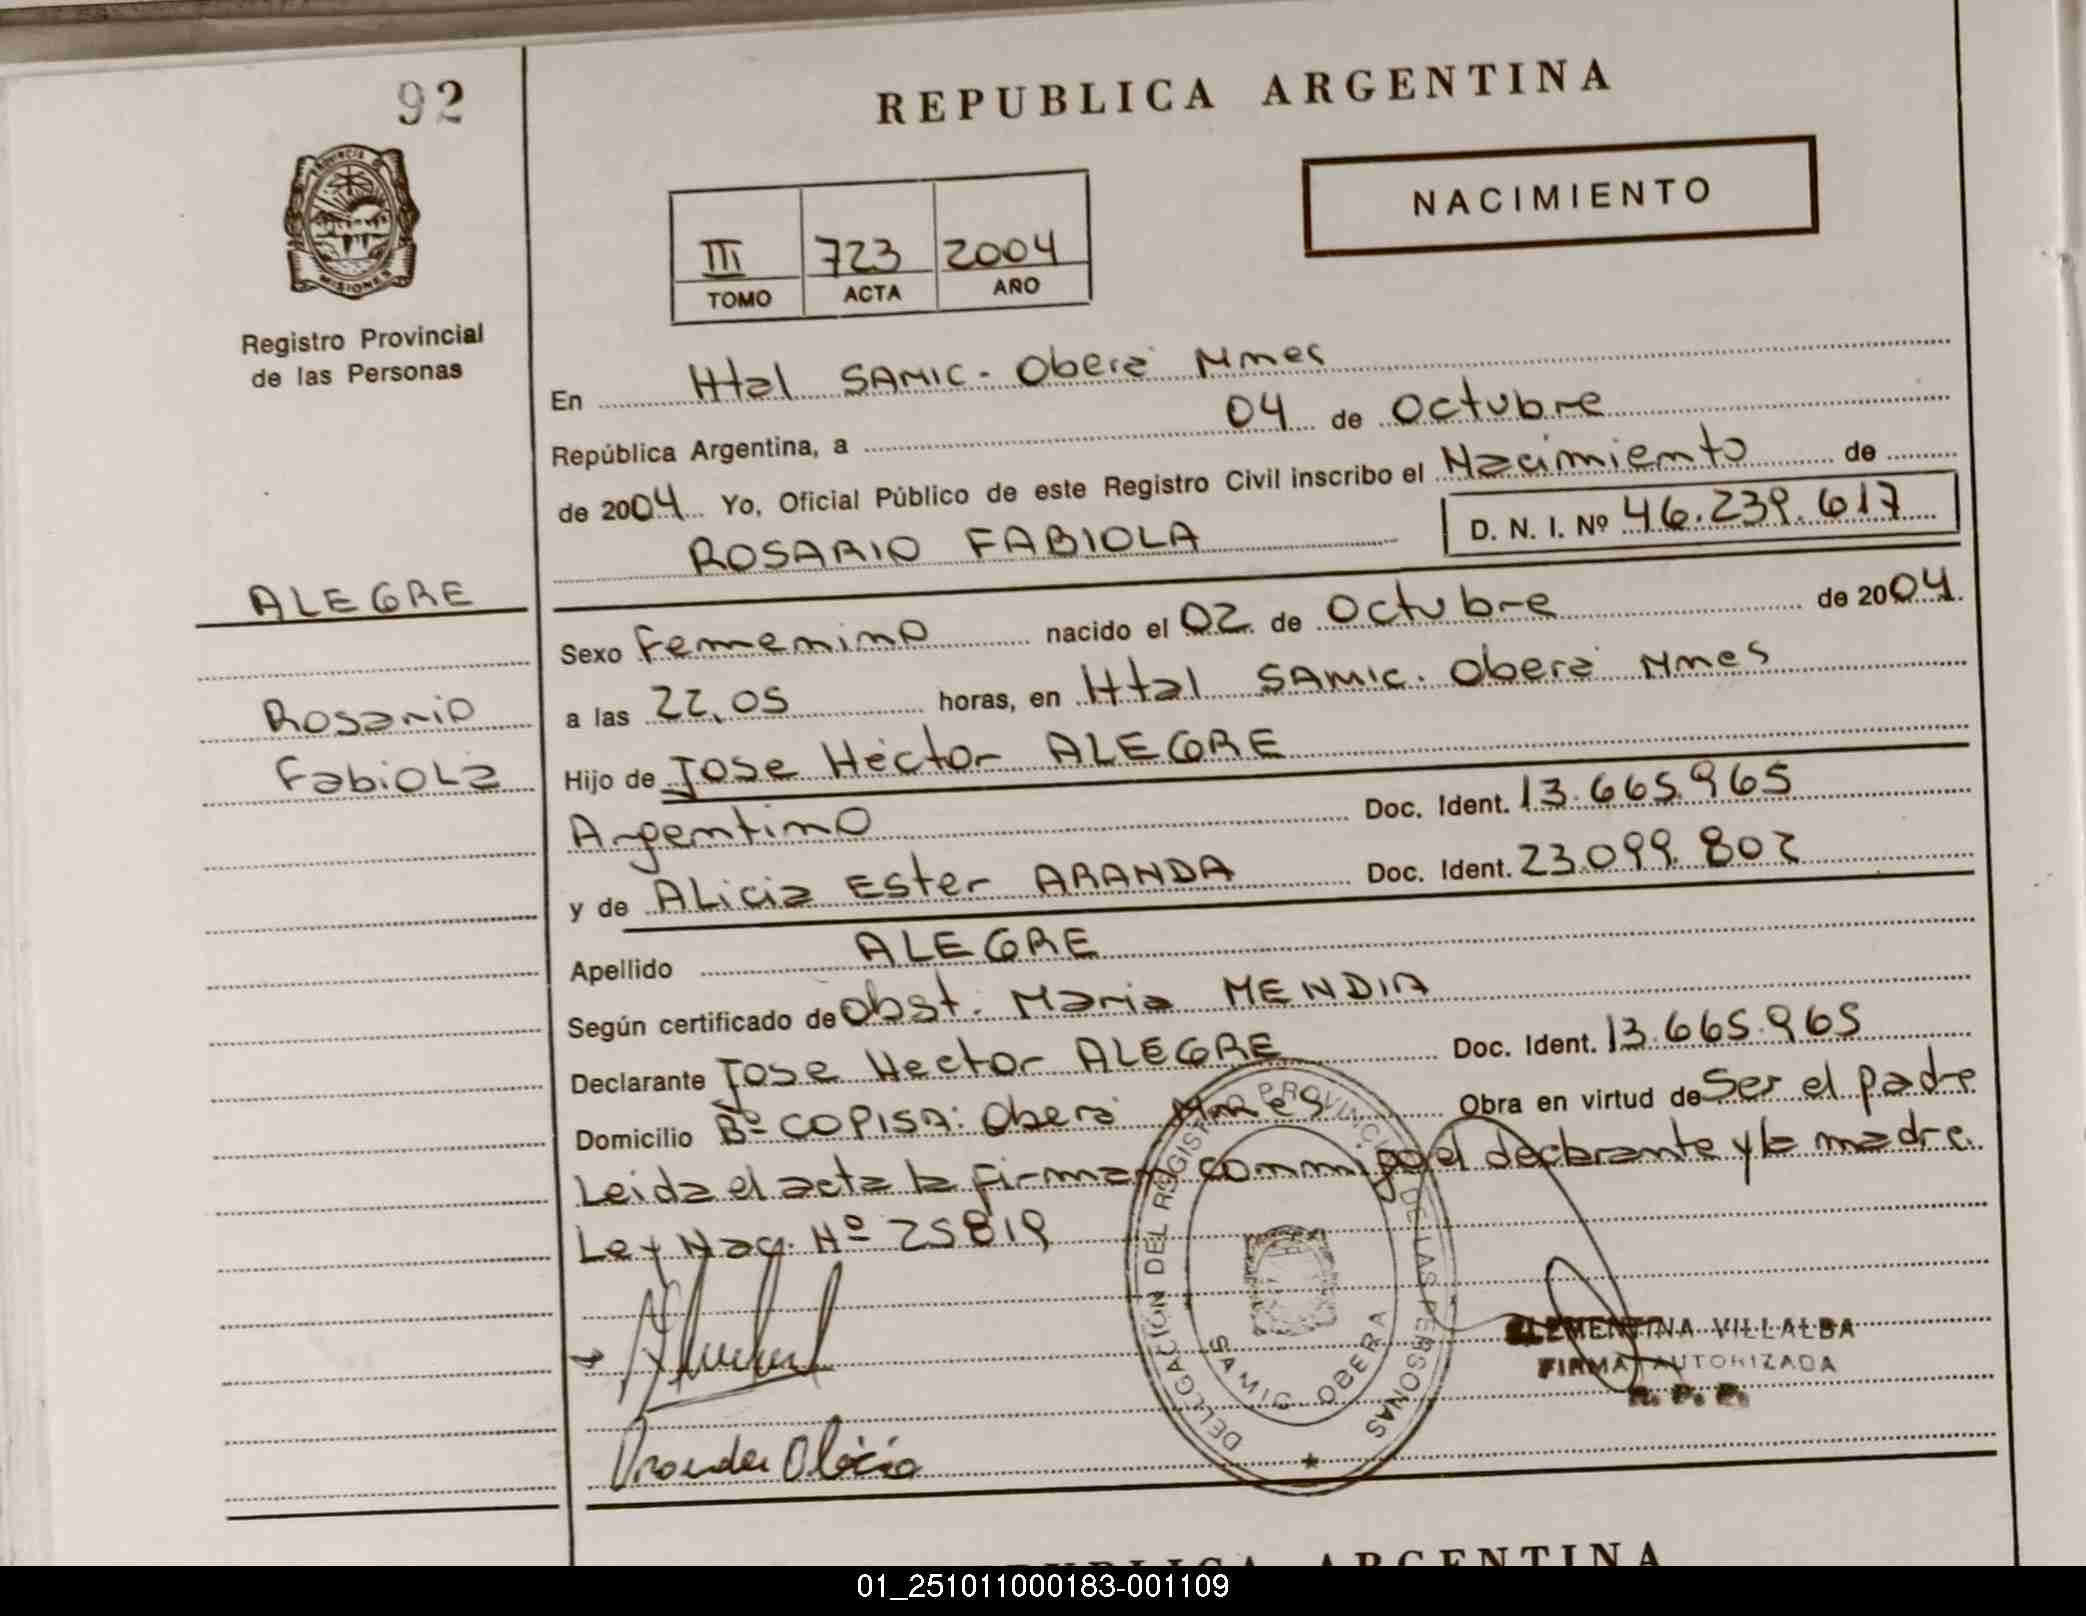 92
REPUBLICA ARGENTINA
NACIMIENTO
PROVINCIA DE
MISIONES
III 723 2004
TOMO ACTA AÑO
Registro Provincial
de las Personas
En Htal SAMIC - Oberá Mnes
República Argentina, a 04 de Octubre
de 2004 Yo, Oficial Público de este Registro Civil inscribo el Nacimiento de
ROSARIO FABIOLA D. N. I. Nº 46.239.617
ALEGRE
Rosario
Fabiola
Sexo Femenino nacido el 02 de Octubre de 2004
a las 22,05 horas, en Htal SAMIC. Oberá Mnes
Hijo de Jose Héctor ALEGRE
Argentino Doc. Ident. 13.665.965
y de Alicia Ester ARANDA Doc. Ident. 23.099.802
Apellido ALEGRE
Según certificado de Obst. Maria MENDIA
Declarante Jose Hector ALEGRE Doc. Ident. 13.665.965
Domicilio Bº COPISA: Oberá Mnes Obra en virtud de Ser el padre
Leida el acta la firman conmigo el declarante y la madre.
Ley Nac. Nº 25819
DELEGACIÓN DEL REGISTRO PROVINCIAL DE LAS PERSONAS
SAMIC OBERA
CLEMENTINA VILLALBA
FIRMA AUTORIZADA
R. P. P.
Aranda Alicia
REPUBLICA ARGENTINA
01_251011000183-001109